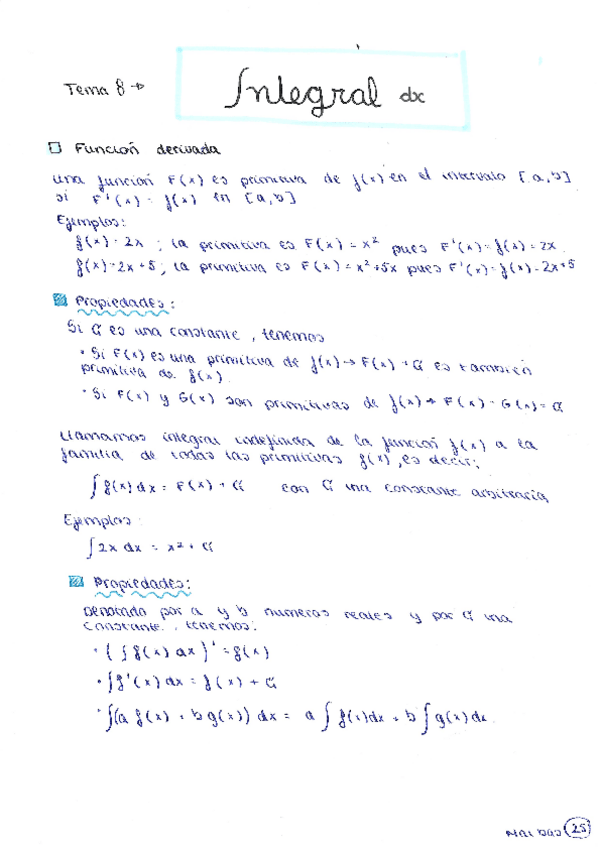 Tema 8 →
Integral dx
Función derivada
una función F(x) es primitiva de f(x) en el intervalo [a,b]
si F'(x) = f(x) en [a,b]
Ejemplos:
f(x) = 2x ; la primitiva es F(x) = x² pues F'(x) = f(x) = 2x
f(x) = 2x + 5 ; la primitiva es F(x) = x² + 5x pues F'(x) = f(x) = 2x + 5
Propiedades:
Si C es una constante, tenemos
• Si F(x) es una primitiva de f(x) → F(x) + C es también
primitiva de f(x)
• Si F(x) y G(x) son primitivas de f(x) → F(x) - G(x) = C
Llamamos integral indefinida de la función f(x) a la
familia de todas las primitivas f(x), es decir;
∫ f(x) dx = F(x) + C con C una constante arbitraria
Ejemplos:
∫ 2x dx = x² + C
Propiedades:
Denotado por a y b numeros reales y por C una
constante, tenemos:
• (∫ f(x) dx)' = f(x)
• ∫ f'(x) dx = f(x) + C
• ∫(a f(x) + b g(x)) dx = a ∫ f(x) dx + b ∫ g(x) dx
25